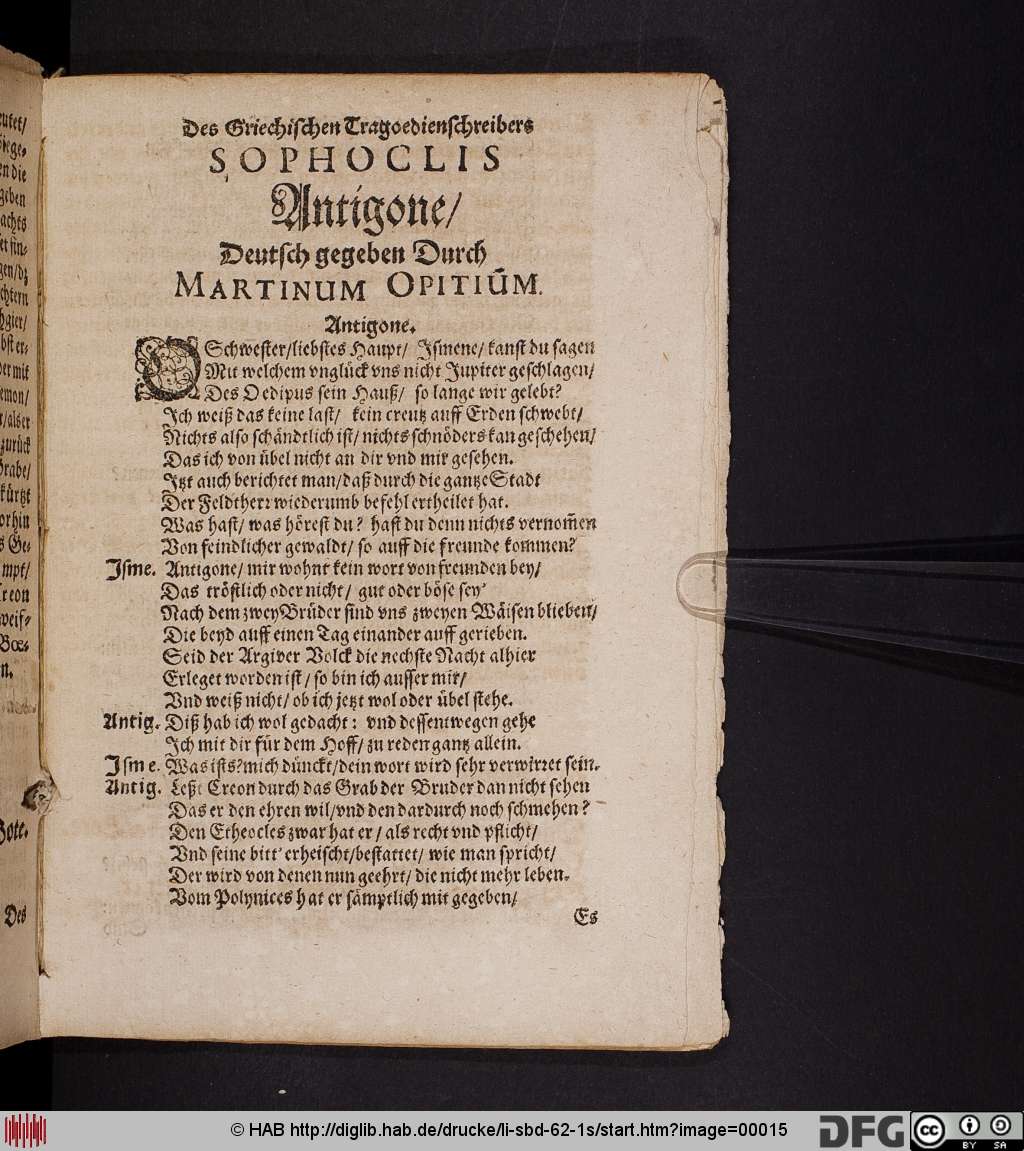 utet/
siege-
en die
geben
achts
et sin-
gen/dz
chtern
hgier/
bst er-
der mit
emon/
t/als er
zurück
Grabe/
kürtzt
orhin
s Ge-
mpt/
reon
weif-
Bœ-
n.
Gott-
Des
Des Griechischen Tragoedienschreibers
SOPHOCLIS
Antigone/
Deutsch gegeben Durch
MARTINUM OPITIŪM.
Antigone.
O Schwester/liebstes Haupt/ Ismene/ kanst du sagen
Mit welchem vnglück vns nicht Jupiter geschlagen/
Des Oedipus sein Hauß/ so lange wir gelebt?
Ich weiß das keine last/ kein creutz auff Erden schwebt/
Nichts also schändtlich ist/ nichts schnöders kan geschehen/
Das ich von übel nicht an dir vnd mir gesehen.
Jtzt auch berichtet man/ daß durch die gantze Stadt
Der Feldtherr wiederumb befehl ertheilet hat.
Was hast/ was hörest du? hast du denn nichts vernom̃en
Von feindlicher gewaldt/ so auff die freunde kommen?
Jsme. Antigone/ mir wohnt kein wort von freunden bey/
Das tröstlich oder nicht/ gut oder böse sey'
Nach dem zwey Brüder sind vns zweyen Wäisen blieben/
Die beyd auff einen Tag einander auff gerieben.
Seid der Argiver Volck die nechste Nacht alhier
Erleget worden ist/ so bin ich ausser mir/
Vnd weiß nicht/ ob ich jetzt wol oder übel stehe.
Antig. Diß hab ich wol gedacht: vnd dessentwegen gehe
Jch mit dir für dem Hoff/ zu reden gantz allein.
Jsme. Was ists? mich dünckt/ dein wort wird sehr verwirret sein.
Antig. Leßt Creon durch das Grab der Bruder dan nicht sehen
Das er den ehren wil/ vnd den dardurch noch schmehen?
Den Etheocles zwar hat er/ als recht vnd pflicht/
Vnd seine bitt' erheischt/ bestattet/ wie man spricht/
Der wird von denen nun geehrt/ die nicht mehr leben.
Vom Polynices hat er sämptlich mit gegeben/
Es
© HAB http://diglib.hab.de/drucke/li-sbd-62-1s/start.htm?image=00015
DFG
cc
BY SA